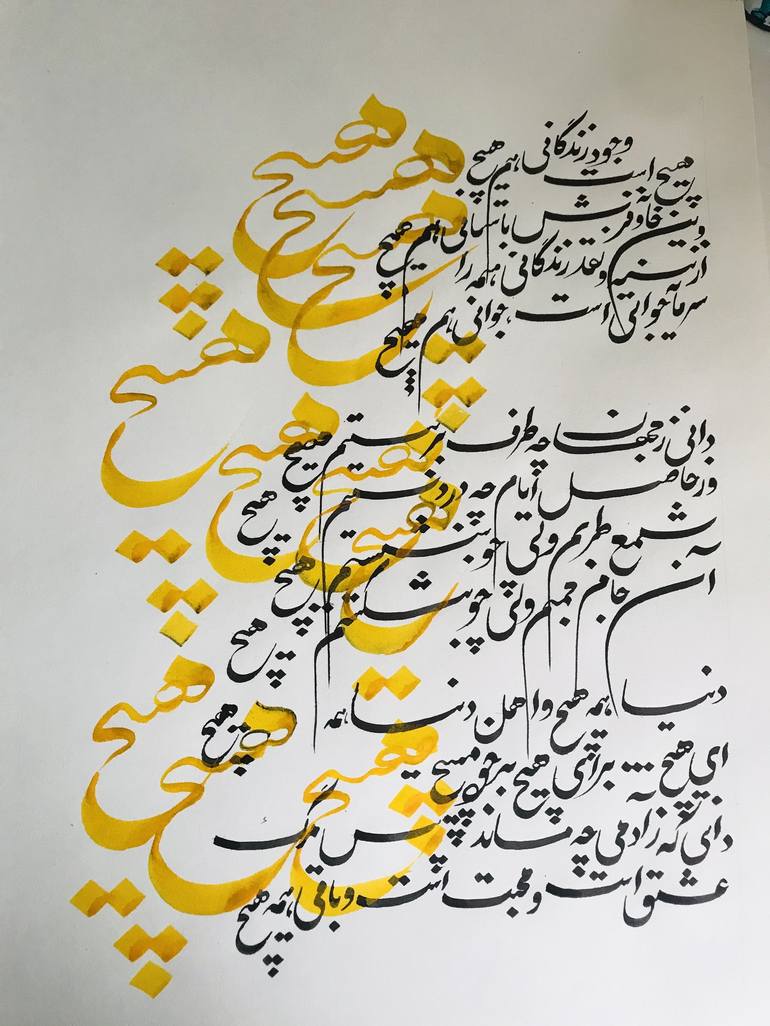 هیچ است وجود زندگانی هم هیچ
وین خانه و فرش باستانی هم هیچ
از نسیه و نقد زندگانی همه را
سرمایه جوانی است جوانی هم هیچ
دانی ز جهان چه طرف بربستم هیچ
وز حاصل ایام چه در دستم هیچ
شمع طربم ولی چو بنشستم هیچ
آن جام جمم ولی چو بشکستم هیچ
دنیا همه هیچ و اهل دنیا همه هیچ
ای هیچ ... برای هیچ بر خود مپیچ
دانی که ز آدمی چه ماند پس مرگ
عشق است و محبت است و باقی همه هیچ
هیچ
هیچ
هیچ
هیچ
هیچ
هیچ
هیچ
هیچ
هیچ
هیچ